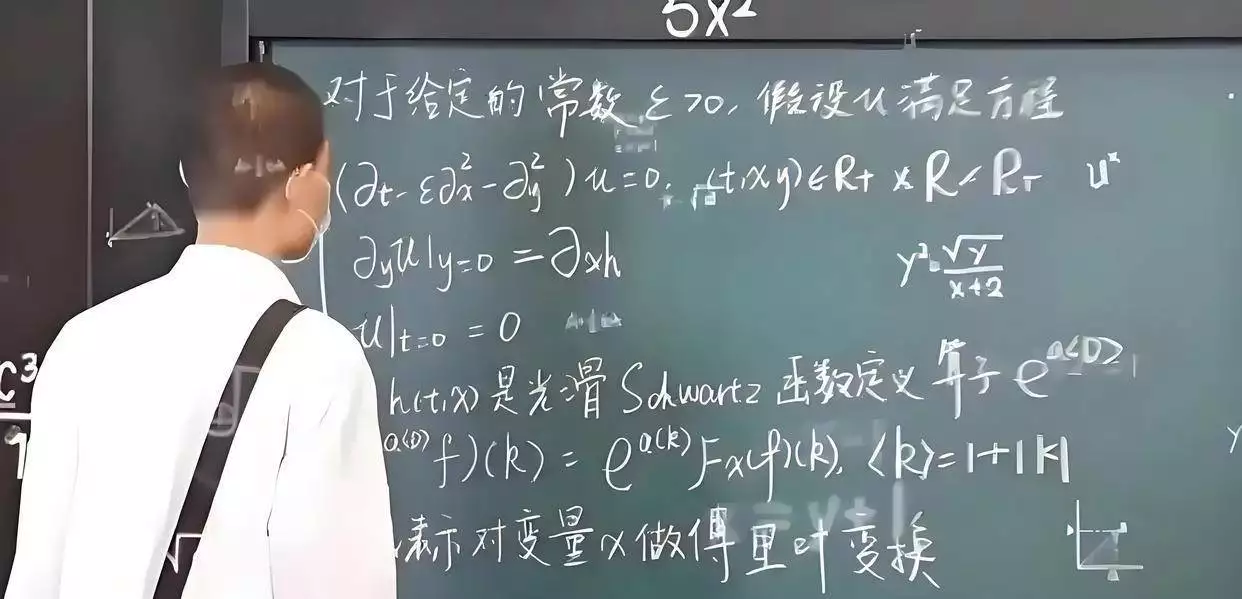 5x²
对于给定的常数 ε>0, 假设u满足方程
(∂t-ε∂x²-∂y²)u=0, (t,x,y)∈R+×R×R+ uˣ
∂yu|y=0=∂xh
y²=√y/x+2
u|t=0=0
h(t,x)是光滑Schwartz函数定义算子e^a⟨D⟩
C³
a⟨D⟩f)(k)=e^a⟨k⟩Fx(f)(k), ⟨k⟩=1+|k|
Y
表示对变量x做傅里叶变换